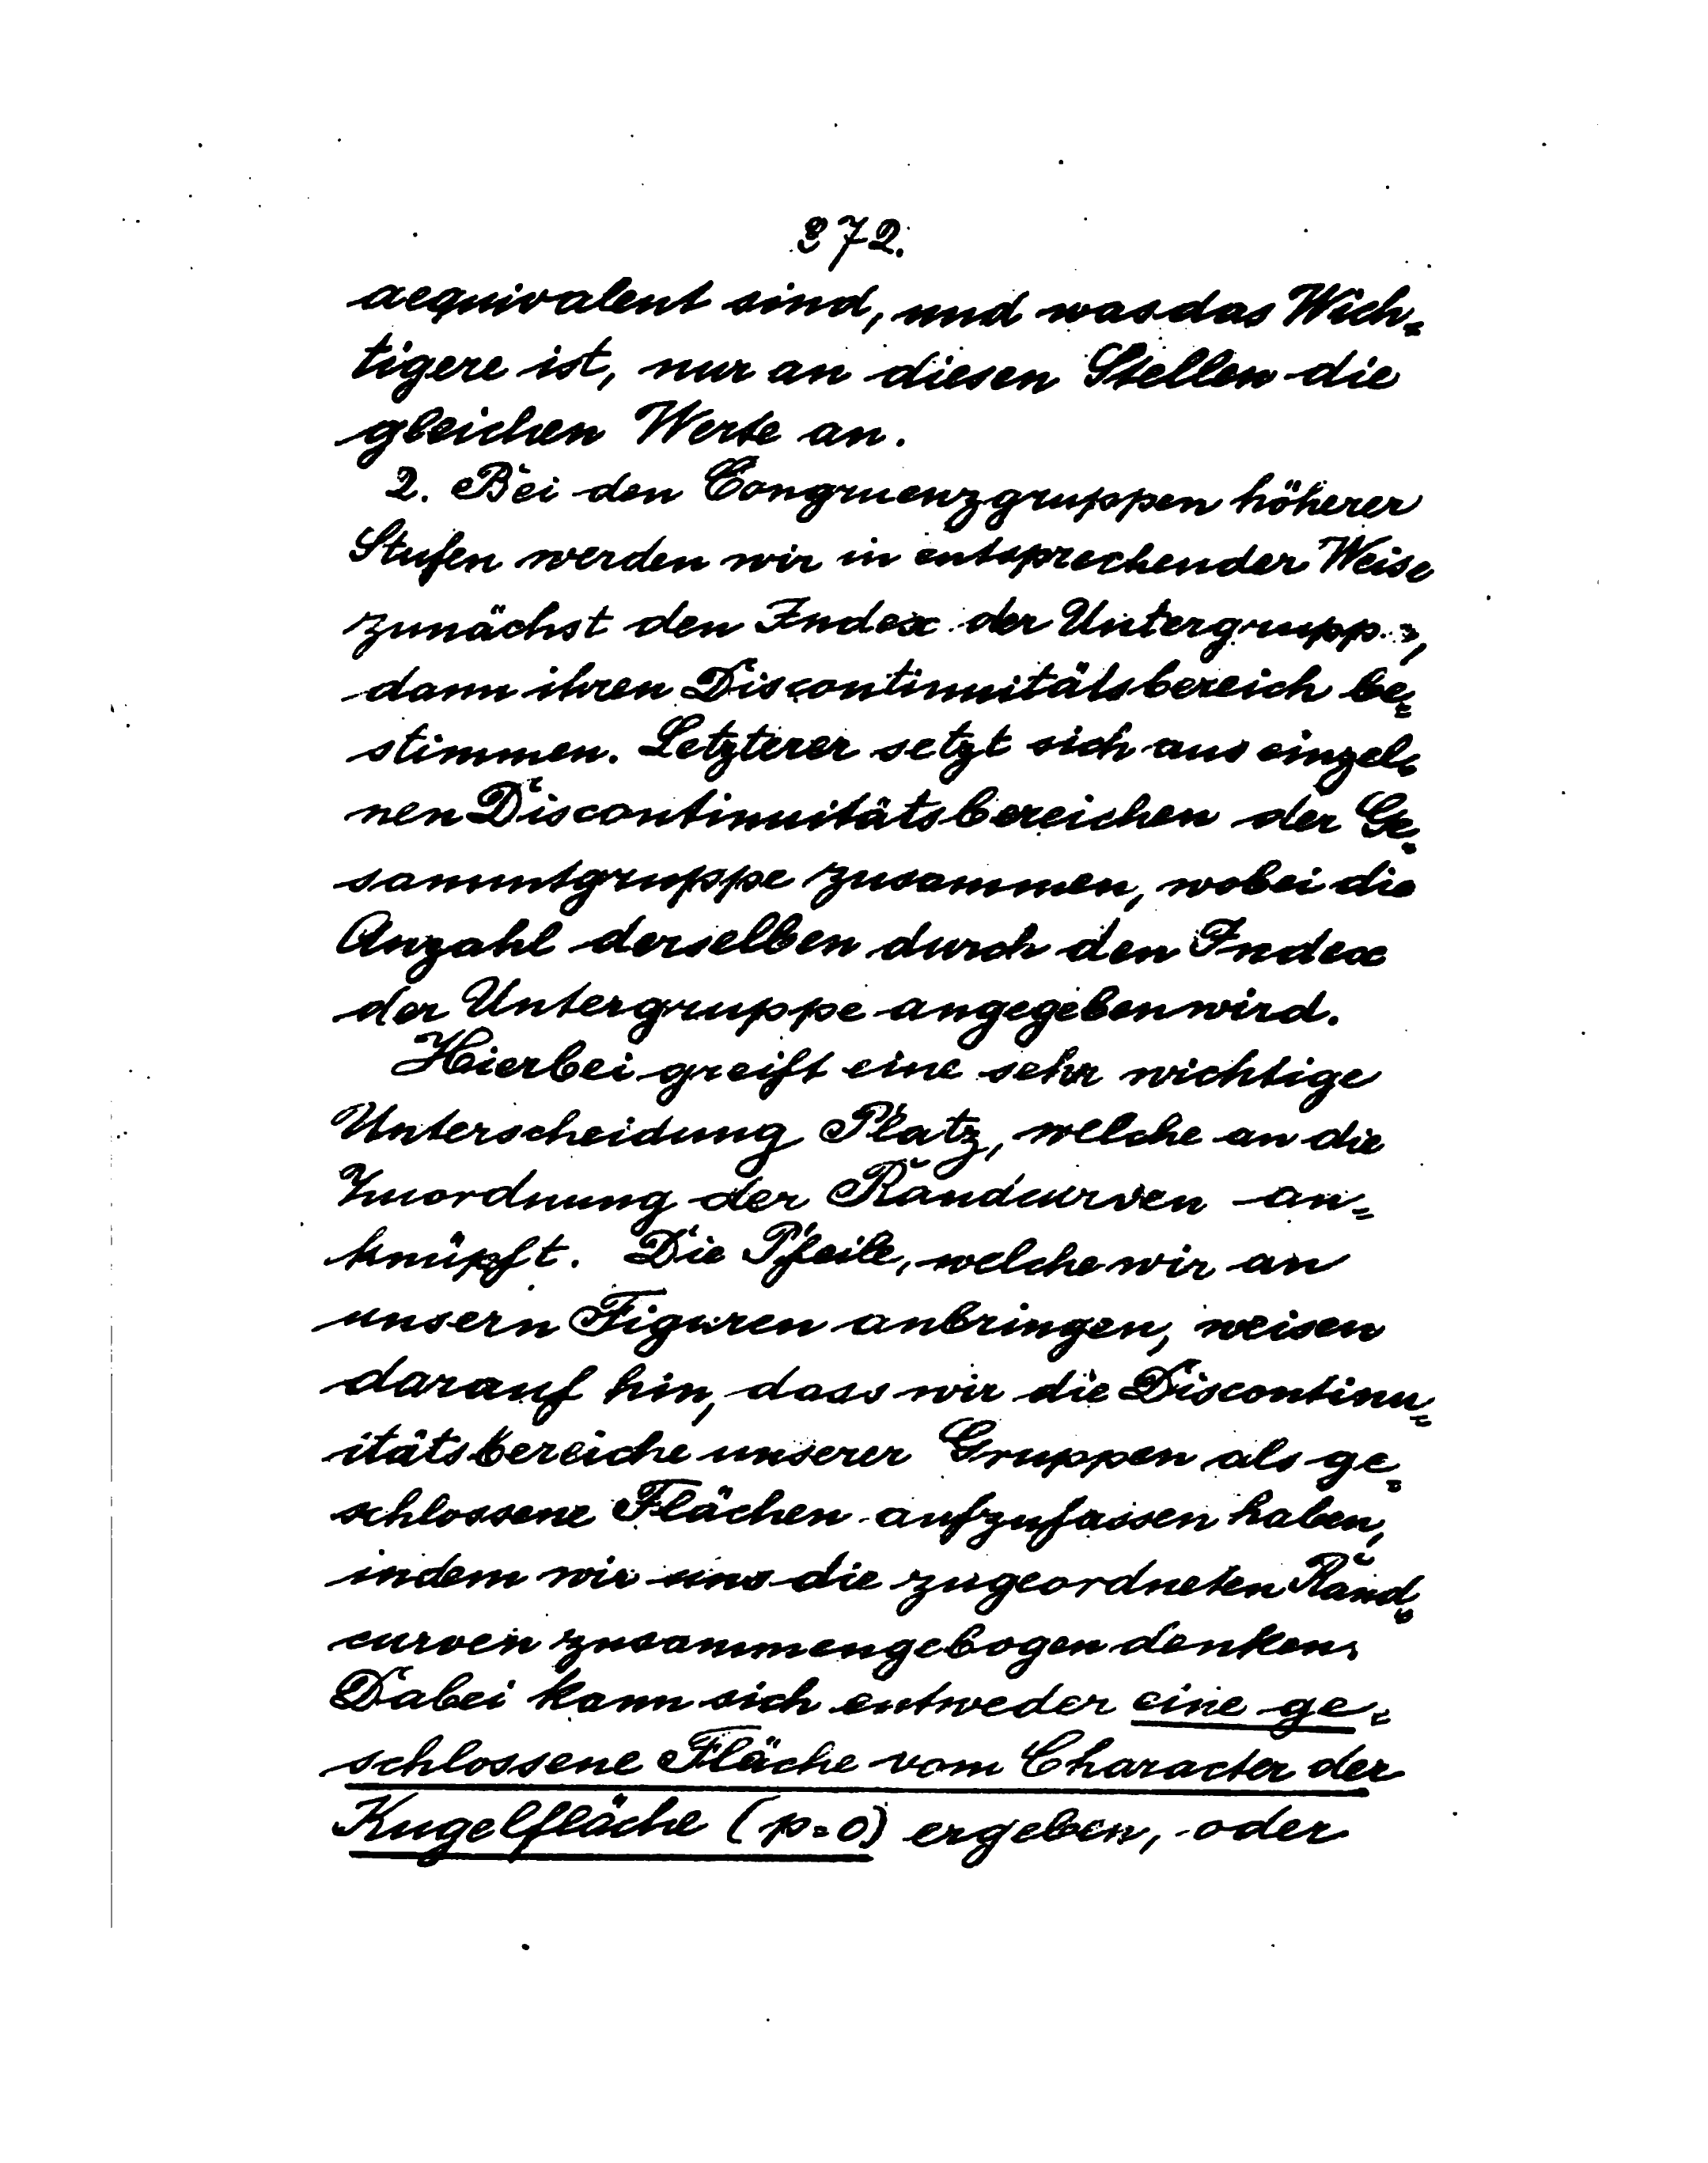 372.
aequivalent sind, und was das Wich-
tigere ist, nur an diesen Stellen die
gleichen Werte an.
2. Bei den Congruenzgruppen höherer
Stufen werden wir in entsprechender Weise
zunächst den Index der Untergruppe,
dann ihren Discontinuitätsbereich be-
stimmen. Letzterer setzt sich aus einzel-
nen Discontinuitätsbereichen der Ge-
sammtgruppe zusammen, wobei die
Anzahl derselben durch den Index
der Untergruppe angegeben wird.
Hierbei greift eine sehr wichtige
Unterscheidung Platz, welche an die
Zuordnung der Randcurven an-
knüpft. Die Pfeile, welche wir an
unsern Figuren anbringen, weisen
darauf hin, dass wir die Discontinu-
itätsbereiche unserer Gruppen als ge-
schlossene Flächen aufzufassen haben,
indem wir uns die zugeordneten Rand-
curven zusammengebogen denken.
Dabei kann sich entweder eine ge-
schlossene Fläche vom Character der
Kugelfläche (p=0) ergeben, oder